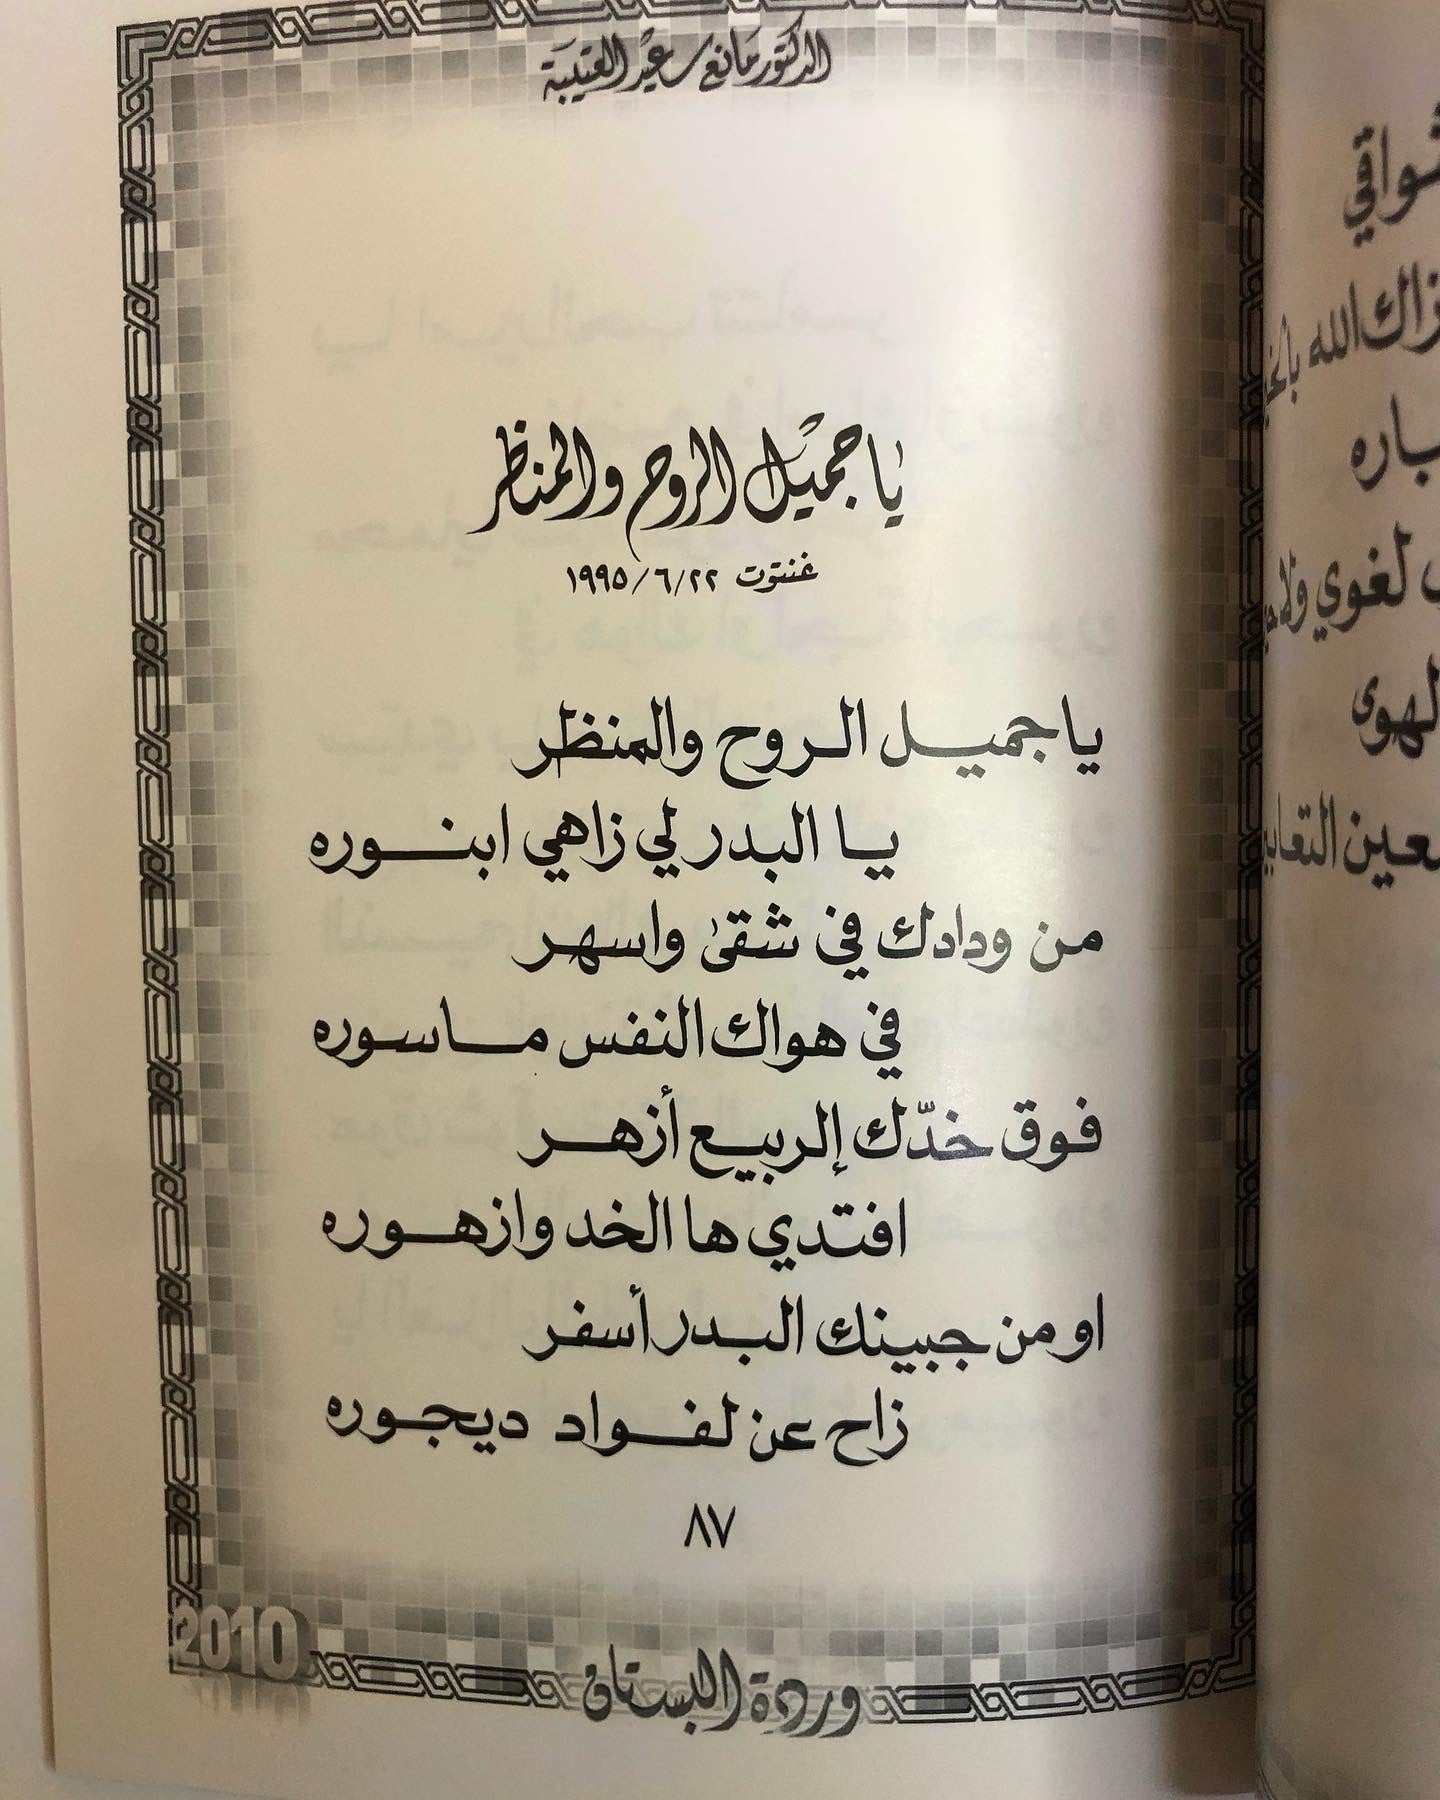 الدكتور مانع سعيد العتيبة
يا جميل الروح والمنظر
غنتوت ٢٢/٦/١٩٩٥
يا جميل الروح والمنظر
يا البدر لي زاهي ابنوره
من ودادك في شقىٰ واسهر
في هواك النفس ماسوره
فوق خدّك إلربيع أزهر
افتدي ها الخد وازهوره
او من جبينك البدر أسفر
زاح عن لفواد ديجوره
٨٧
2010
وردة البستان
باره
لغوي
لهوى